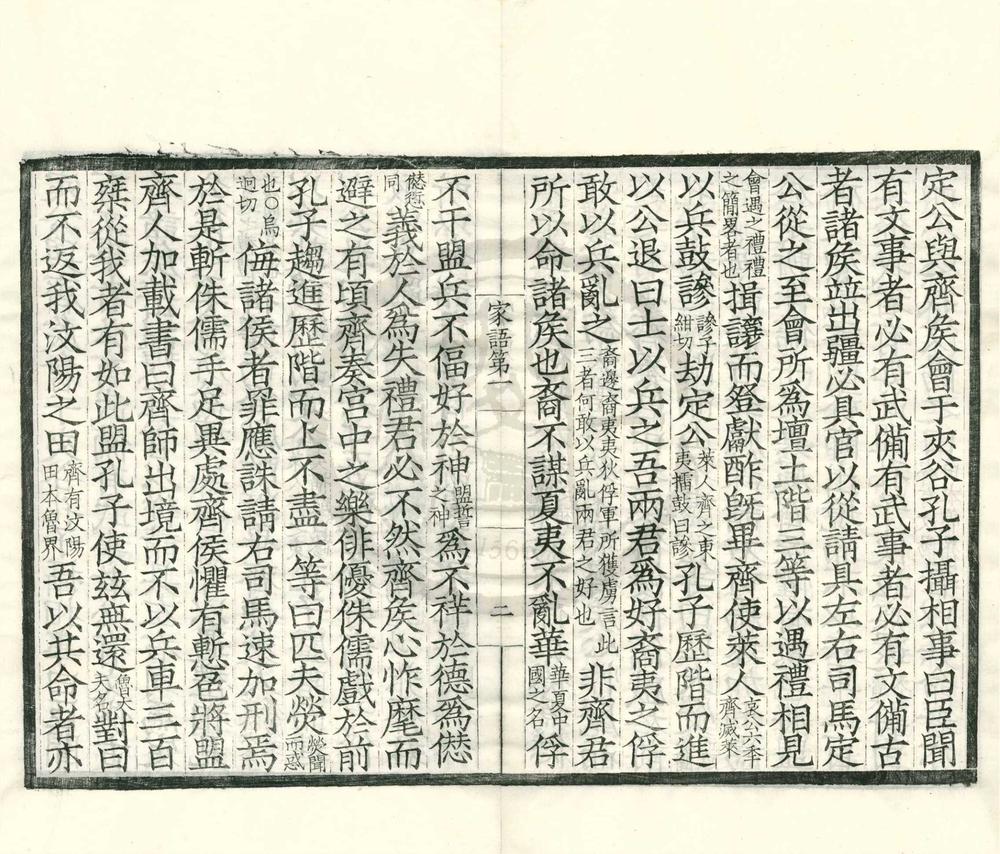 定公與齊侯會于夾谷孔子攝相事曰臣聞
有文事者必有武備有武事者必有文備古
者諸侯並出疆必具官以從請具左右司馬定
公從之至會所為壇土階三等以遇禮相見
會遇之禮禮之簡畧者也揖讓而登獻酢旣畢齊使萊人齊滅萊
以兵鼓謲謲子紺切劫定公萊人齊之東夷擂鼓曰謲孔子歷階而進
以公退曰士以兵之吾兩君為好裔夷之俘
敢以兵亂之裔邊裔夷夷狄俘軍所獲虜言此三者何敢以兵亂兩君之好也非齊君
所以命諸侯也裔不謀夏夷不亂華華夏中國之名俘
家語第一
二
不干盟兵不偪好於神盟誓之神為不祥於德為愆
義於人為失禮君必不然齊侯心怍麾而
避之有頃齊奏宮中之樂俳優侏儒戲於前
孔子趨進歷階而上不盡一等曰匹夫熒熒聞而惑
也〇烏迥切侮諸侯者罪應誅請右司馬速加刑焉
於是斬侏儒手足異處齊侯懼有慙色將盟
齊人加載書曰齊師出境而不以兵車三百
乘從我者有如此盟孔子使玆無還魯大夫名對曰
而不返我汶陽之田齊有汶陽田本魯界吾以共命者亦